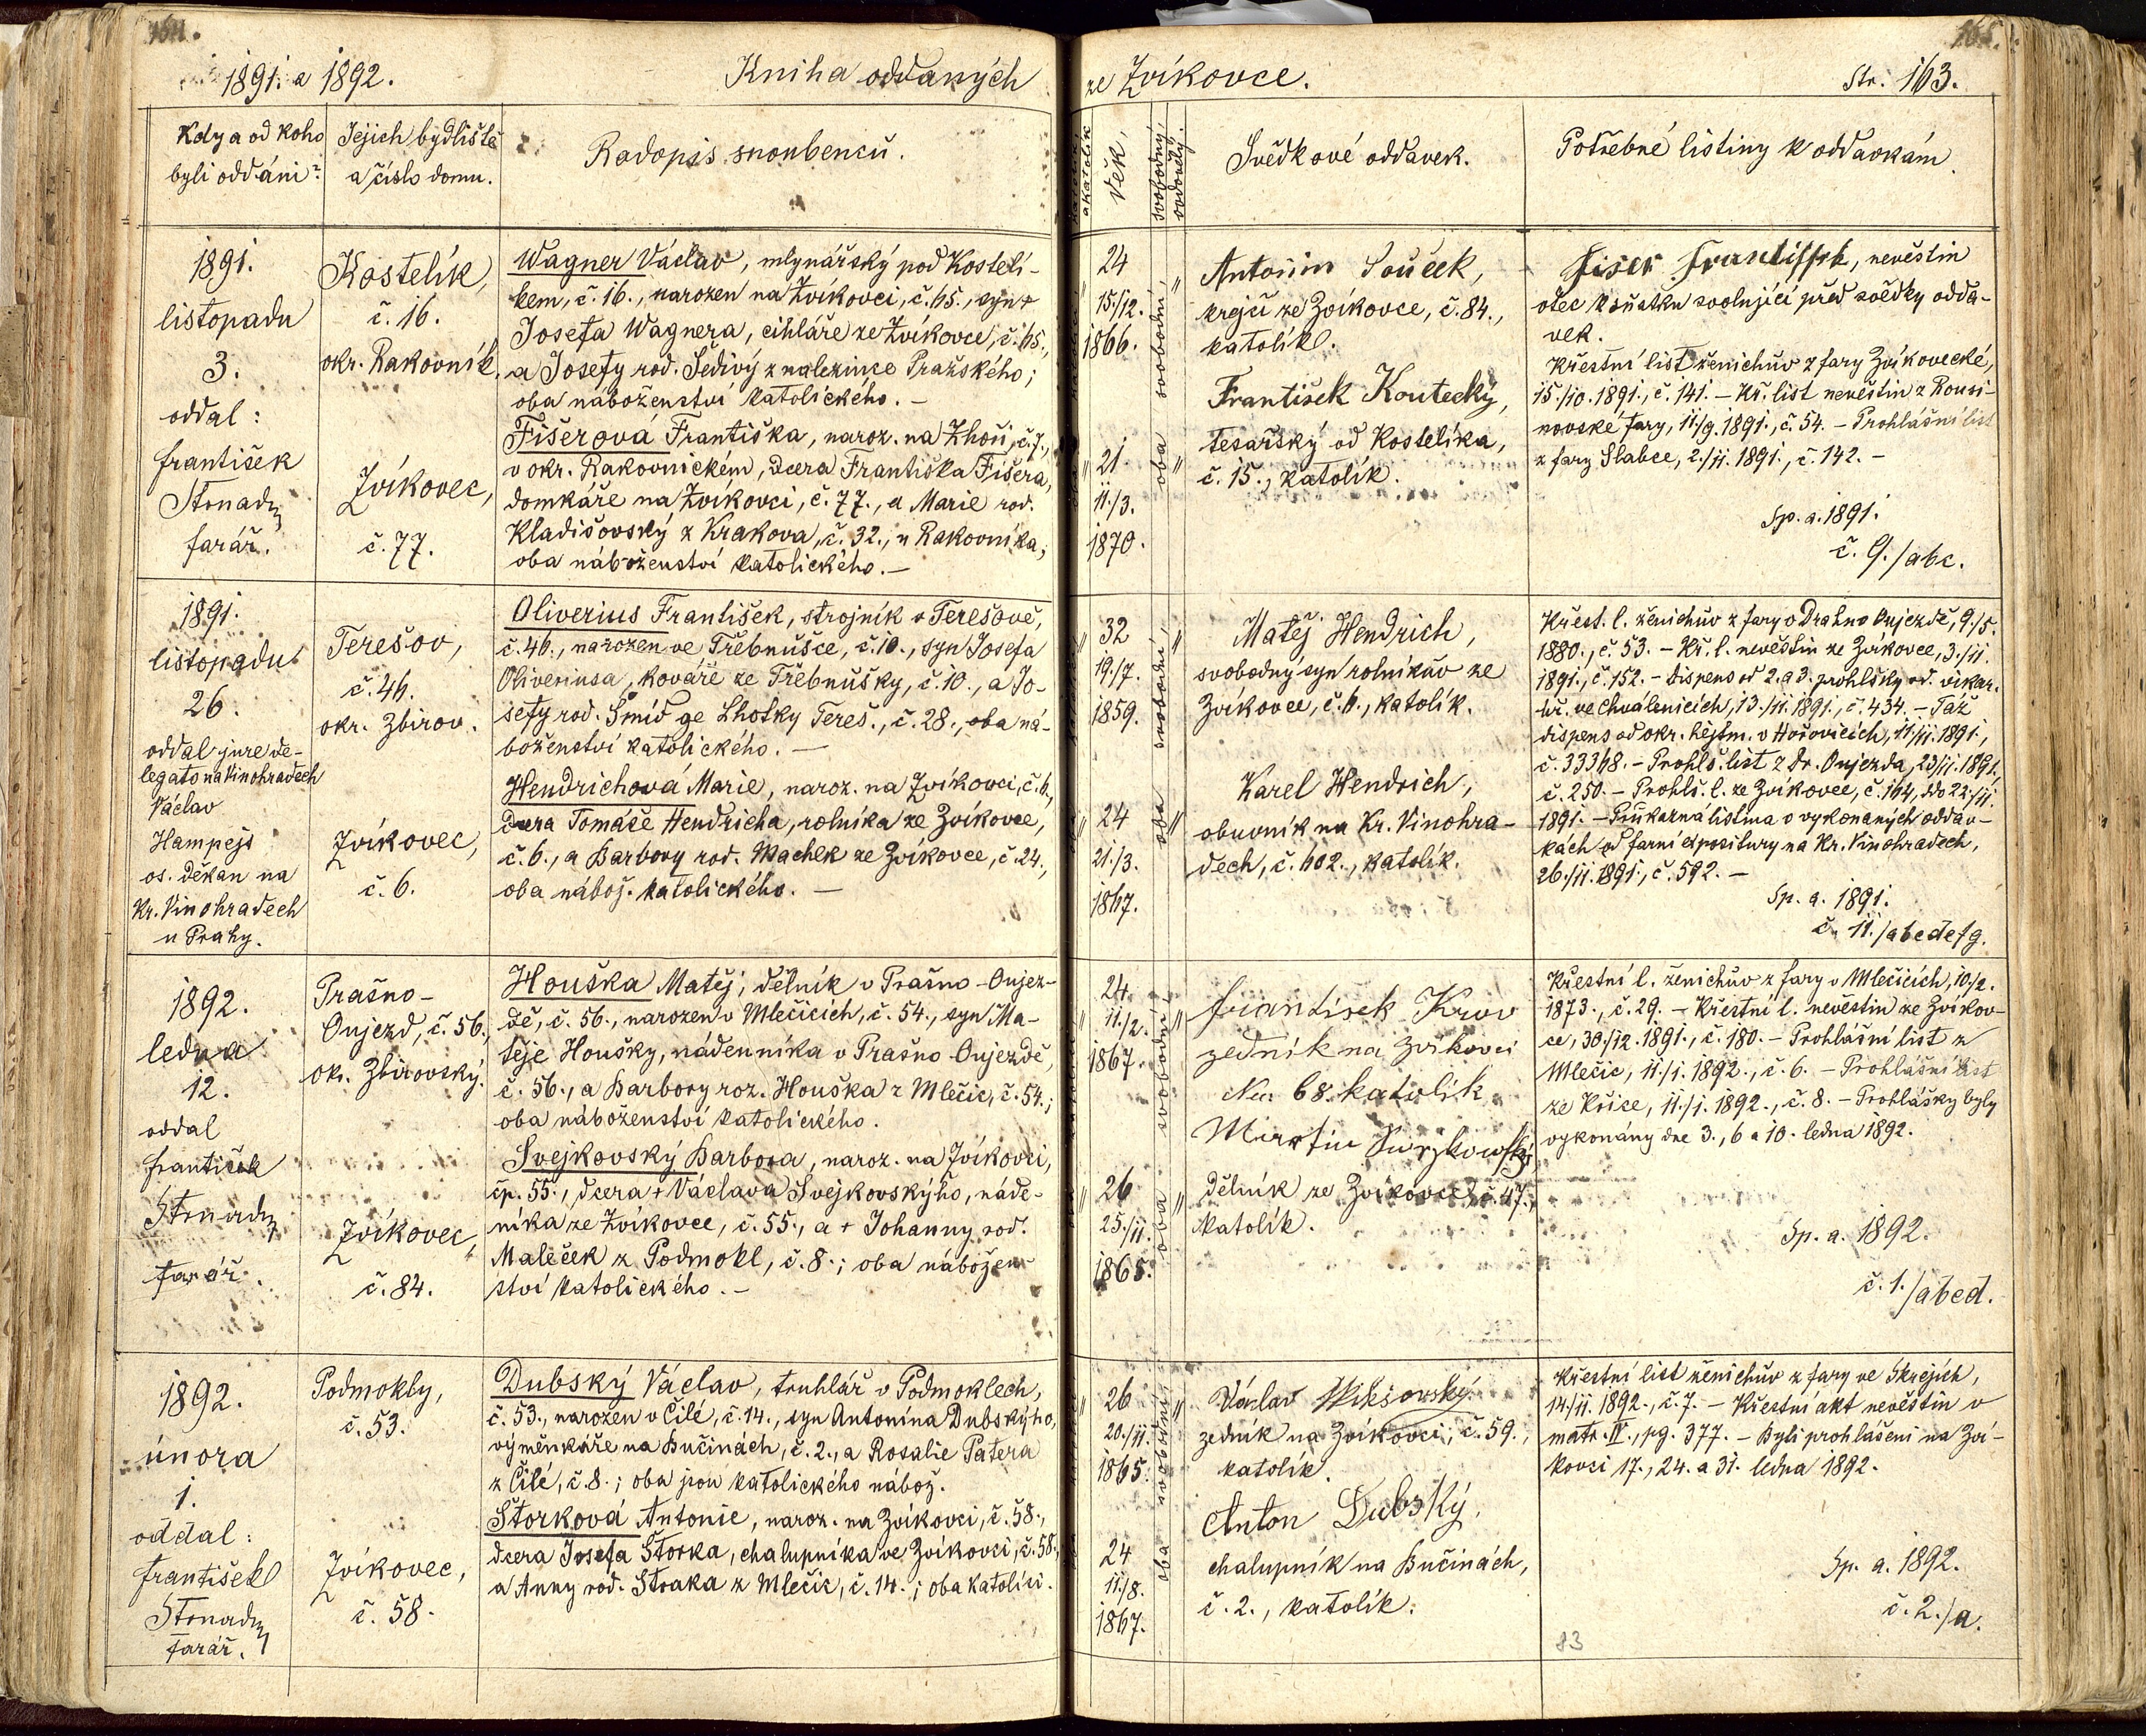 1891. a 1892.
Kniha oddaných
ze Zvíkovce.
Str. 163.
Kdy a od koho
byli oddáni?
Jejich bydliště
a číslo domu.
Rodopis snoubenců.
akatolík
Věk,
svobodný,
ovdovělý.
Svědkové oddavek.
Potřebné listiny k oddavkám.
1891.
listopadu
3.
oddal:
František
Stonadn
farář.
Kostelík,
č. 16.
okr. Rakovník.
Zvíkovec,
č. 77.
Wagner Václav, mlynářský pod Kostelí-
kem, č. 16., narozen na Zvíkovci, č. 65., syn +
Josefa Wagnera, cihláře ze Zvíkovce, č. 65.,
a Josefy rod. Šedivý z nalezince Pražského;
oba náboženství katolického. —
Fišerová Františka, naroz. na Zhoři, č. 7.,
v okr. Rakovnickém, dcera Františka Fišera,
domkáře na Zvíkovci, č. 77., a Marie rod.
Kladišovský z Krakova, č. 32., u Rakovníka;
oba náboženství katolického. —
24
15./12.
1866.
21
11./3.
1870.
oba svobodní
Antonin Souček,
krejčí ze Zvíkovce, č. 84.,
katolík.
František Koutecký,
tesařský od Kostelíka,
č. 15., katolík.
Fišer Frantissek, nevěstin
otec k sňatku svolující před svědky odda-
vek.
Křestní list ženichův z fary Zvíkovecké,
15./10. 1891., č. 141. — Kř. list nevěstin z Rousi-
novské fary, 11./9. 1891., č. 54. — Prohlášní list
z fary Slabce, 2./11. 1891., č. 142. —
Sp. a. 1891.
č. 9./abc.
1891.
listopadu
26.
oddal jure de-
legato na Vinohradech
Václav
Hampejs
os. děkan na
Kr. Vinohradech
u Prahy.
Terešov,
č. 46.
okr. Zbirov.
Zvíkovec,
č. 6.
Oliverius František, strojník v Terešově,
č. 46., narozen ve Třebnušce, č. 10., syn Josefa
Oliveriusa, kováře ze Třebnušky, č. 10., a Jo-
sefy rod. Šmíd ze Lhotky Tereš., č. 28., oba ná-
boženství katolického. —
Hendrichová Marie, naroz. na Zvíkovci, č. 6.,
dcera Tomáše Hendricha, rolníka ze Zvíkovce,
č. 6., a Barbory rod. Machek ze Zvíkovce, č. 24.,
oba nábož. katolického. —
32
19./7.
1859.
24
21./3.
1867.
oba svobodní
Matěj Hendrich,
svobodný syn rolníkův ze
Zvíkovce, č. 6., katolík.
Karel Hendrich,
obuvník na Kr. Vinohra-
dech, č. 602., katolík.
Křest. l. ženichův z fary v Drahno Oujezdě, 9./5.
1880., č. 53. — Kř. l. nevěstin ze Zvíkovce, 3./11.
1891., č. 152. — Dispens od 2. a 3. prohlášky od vikar.
úř. ve Chválenicích, 13./11. 1891., č. 434. — Táž
dispens od okr. hejtm. v Hořovicích, 11./11. 1891.,
č. 33368. — Prohlš. list z Dr. Oujezda, 23/11. 1891.,
č. 250. — Prohlš. l. ze Zvíkovce, č. 164, ddo 22./11.
1891. — Průkazná listina o vykonaných oddav-
kách od farní expositury na Kr. Vinohradech,
26./11. 1891., č. 592. —
Sp. a. 1891.
č. 11./abcdefg.
1892.
ledna
12.
oddal
František
Stonadn
farář.
Prašno-
Oujezd, č. 56.,
ok. Zbirovský.
Zvíkovec,
č. 84.
Houška Matěj, dělník v Prašno-Oujez-
dě, č. 56., narozen v Mlečicích, č. 54., syn Ma-
těje Houšky, nádenníka v Prašno-Oujezdě,
č. 56., a Barbory roz. Houška z Mlečic, č. 54.;
oba náboženství katolického.
Švejkovský Barbora, naroz. na Zvíkovci,
čp. 55., dcera + Václava Švejkovskýho, náde-
níka ze Zvíkovce, č. 55., a + Johanny rod.
Maleček z Podmokl, č. 8.; oba nábožen-
ství katolického. —
24
11./2.
1867.
26
25./11.
1865.
oba svobodní
František Krov
zedník na Zvíkovci
No: 68. katolík
Martin
dělník ze Zvíkovce, č. 47.,
katolík.
Křestní l. ženichův z fary v Mlečicích, 10./2.
1873., č. 29. — Křestní l. nevěstin ze Zvíkov-
ce, 30./12. 1891., č. 180. — Prohlášní list z
Mlečic, 11./1. 1892., č. 6. — Prohlášní list
ze Křice, 11./1. 1892., č. 8. — Prohlášky byly
vykonány dne 3., 6 a 10. ledna 1892.
Sp. a. 1892.
č. 1./abcd.
1892.
února
1.
oddal:
František
Stonadn
farář.
Podmokly,
č. 53.
Zvíkovec,
č. 58.
Dubský Václav, truhlář v Podmoklech,
č. 53., narozen v Čilé, č. 14., syn Antonína Dubskýho,
výměnkáře na Bučinách, č. 2., a Rosalie Patera
z Čilé, č. 8.; oba jsou katolického nábož.
Štorková Antonie, naroz. na Zvíkovci, č. 58.,
dcera Josefa Štorka, chalupníka ve Zvíkovci, č. 58.,
a Anny rod. Straka z Mlečic, č. 14.; oba katolíci.
26
20./11.
1865.
24
11./8.
1867.
oba svobodní
Václav
zedník na Zvíkovci, č. 59.,
katolík.
Anton Dubský,
chalupník na Bučinách,
č. 2., katolík.
Křestní list ženichův z fary ve Skrejích,
14./11. 1892., č. 7. — Křestní akt nevěstin v
matr. IV., pg. 377. — Byli prohlášeni na Zví-
kovci 17., 24. a 31. ledna 1892.
Sp. a. 1892.
č. 2./a.
83